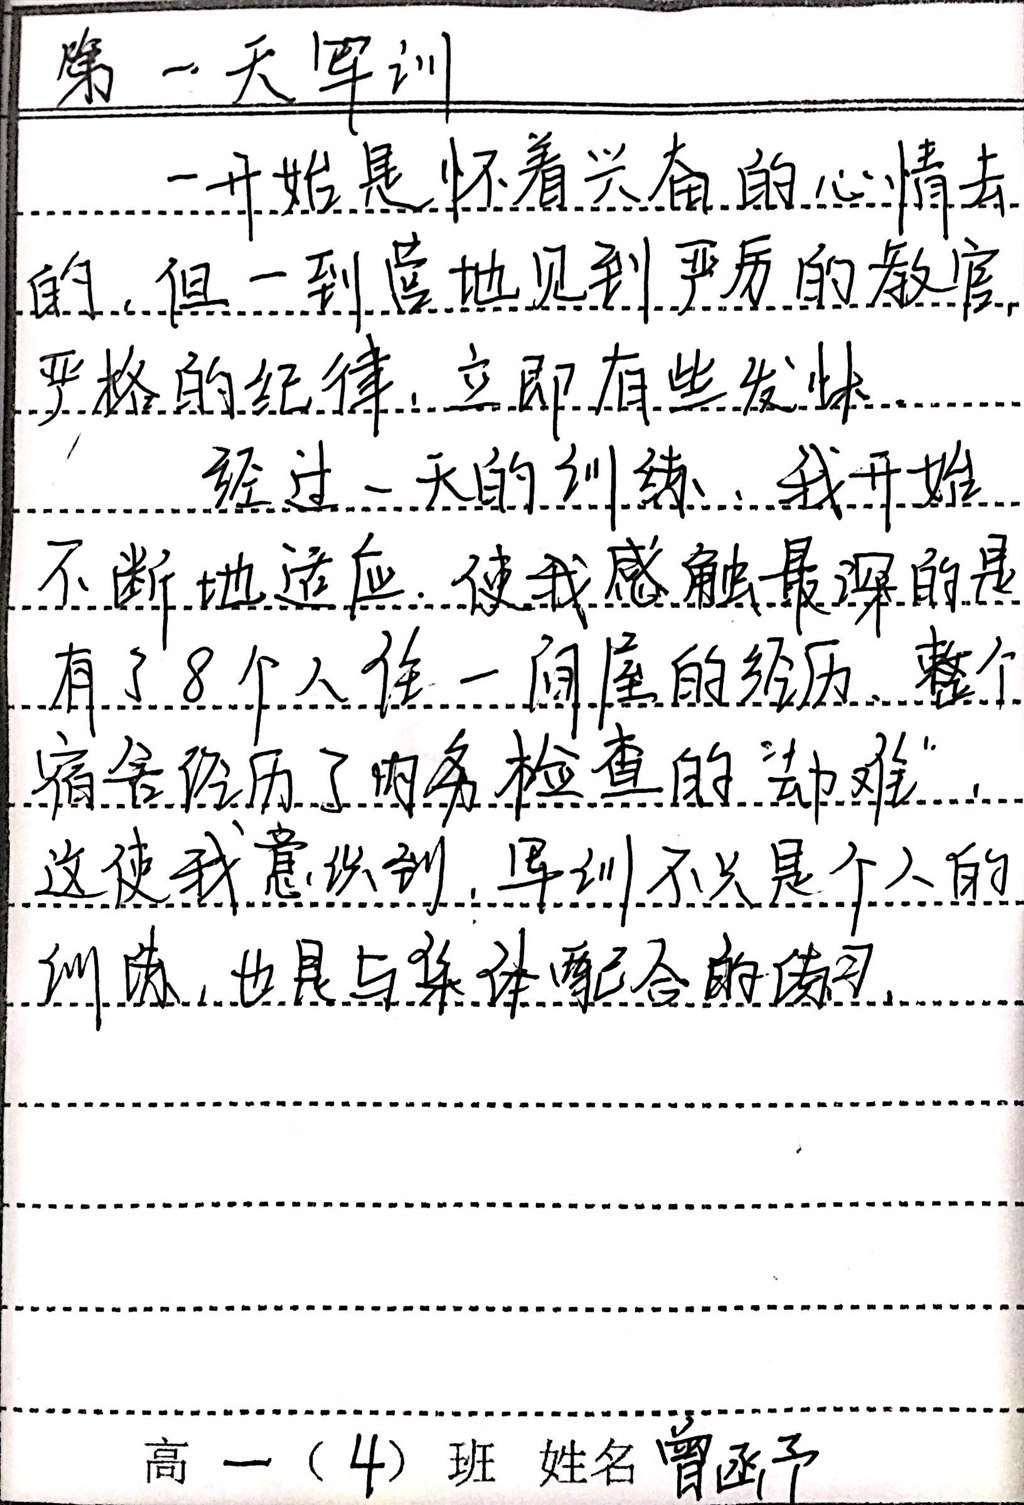 第一天军训
一开始是怀着兴奋的心情去
的,但一到营地见到严厉的教官,
严格的纪律,立即有些发怵.
经过一天的训练,我开始
不断地适应.使我感触最深的是
有了8个人住一间屋的经历、整个
宿舍经历了内务检查的“劫难”,
这使我意识到,军训不只是个人的
训练,也是与集体配合的练习.
高一(4)班 姓名 曾函予